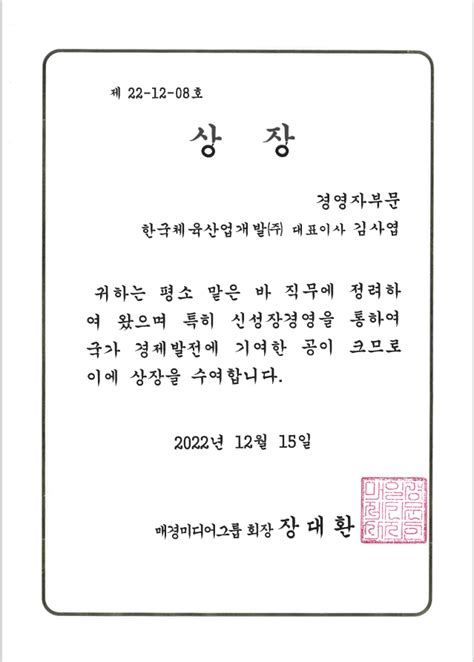 제 22-12-08호
상 장
경영자부문
한국체육산업개발(주) 대표이사 김사엽
귀하는 평소 맡은 바 직무에 정려하
여 왔으며 특히 신성장경영을 통하여
국가 경제발전에 기여한 공이 크므로
이에 상장을 수여합니다.
2022년 12월 15일
매경미디어그룹 회장 장대환